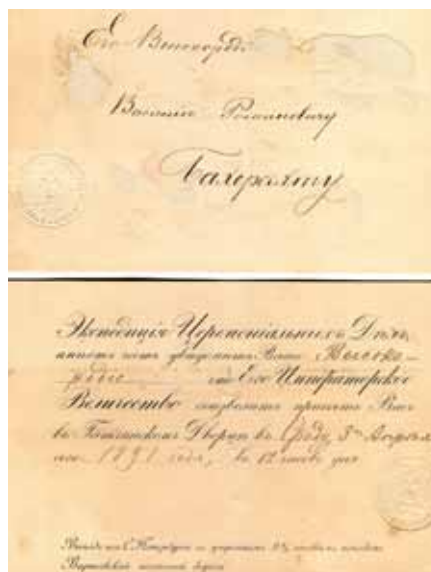 Его Высокородію
Василію Романовичу
Бахерахту
Экспедиція Церемоніальныхъ Дѣлъ
имѣетъ честь увѣдомить Ваше Высоко-
родіе что Его Императорское
Величество соизволитъ принять Васъ
въ Гатчинскомъ Дворцѣ въ Среду, 3го Апрѣля
1891 года, въ 12 часовъ дня
Выѣздъ изъ С. Петербурга
Варшавской желѣзной дороги